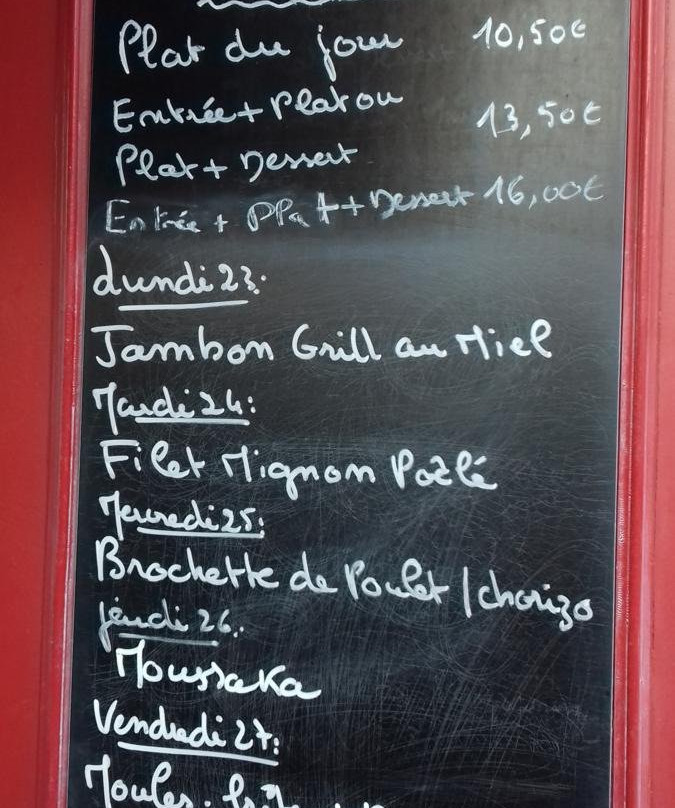 Plat du jour 10,50€
Entrée + Plat ou 13,50€
Plat + Dessert
Entrée + Plat + Dessert 16,00€
Lundi 23:
Jambon Grill au Miel
Mardi 24:
Filet Mignon Poêlé
Mercredi 25:
Brochette de Poulet / chorizo
jeudi 26:
Moussaka
Vendredi 27:
Moules.